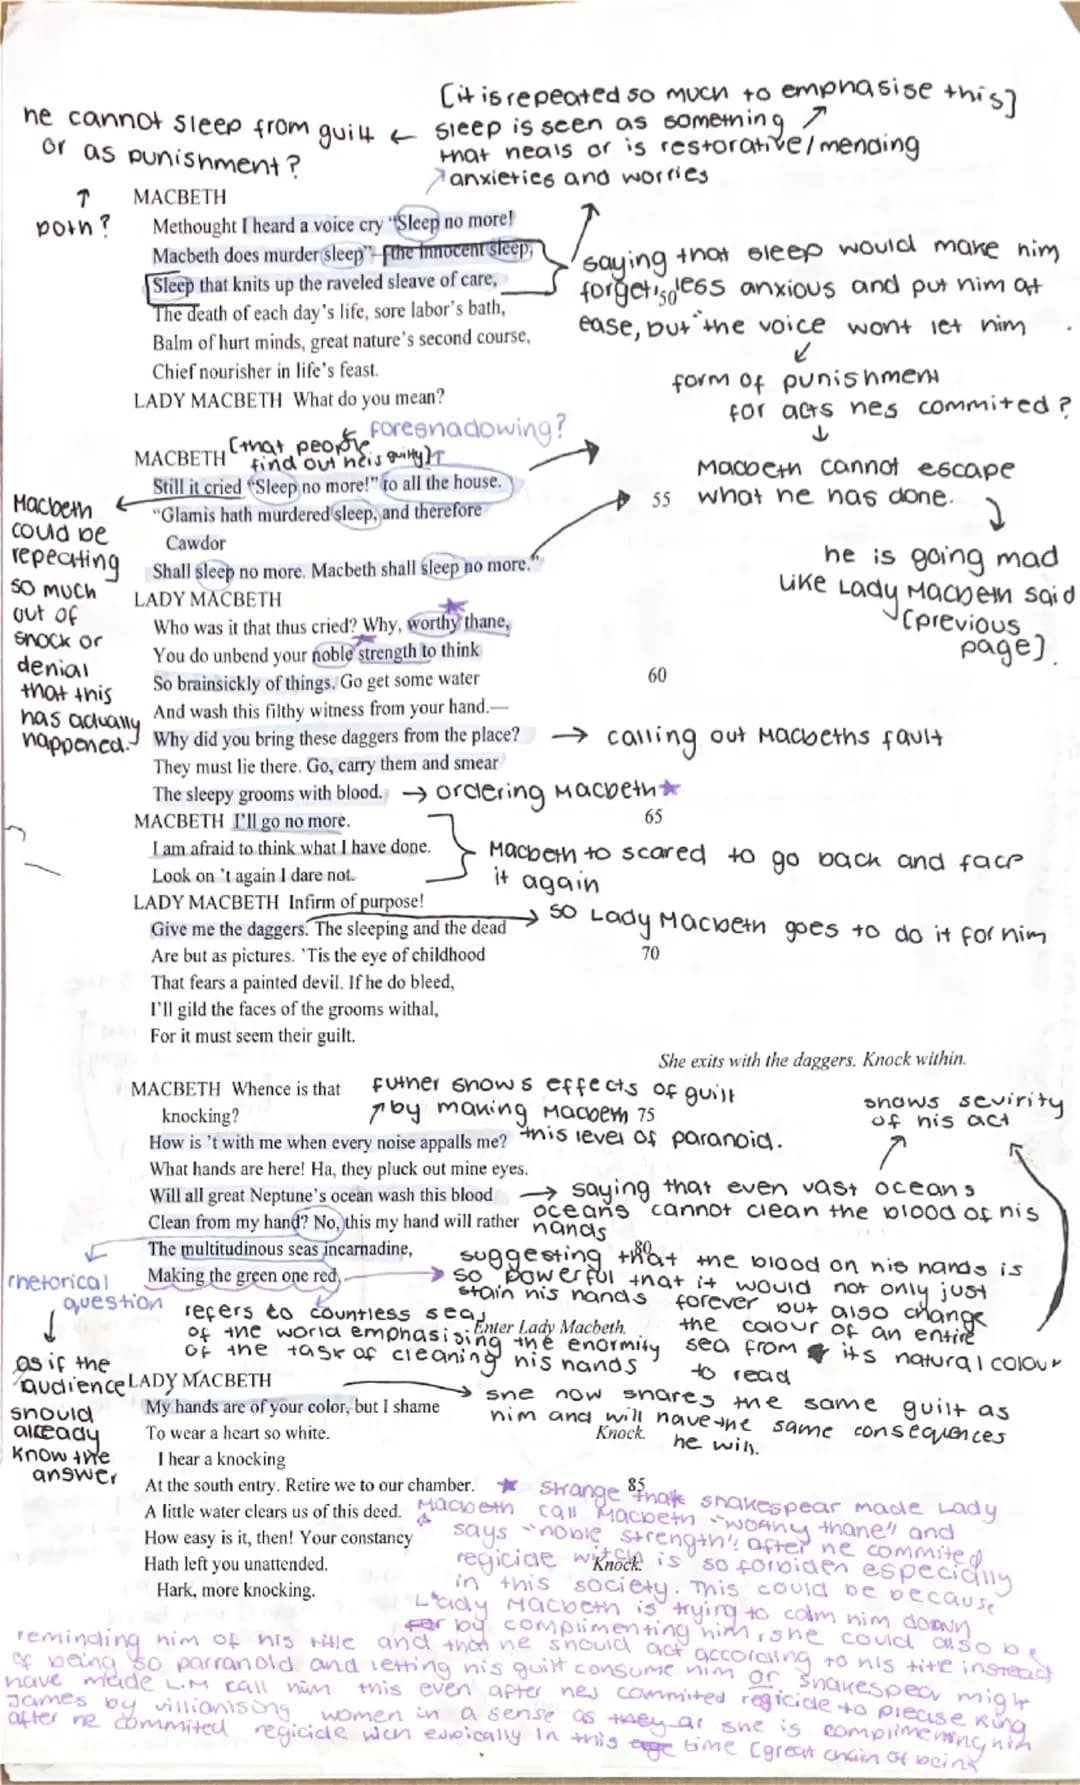 [it is repeated so much to emphasise this]
he cannot sleep from guilt ← sleep is seen as something
or as punishment?
that heals or is restorative/mending
anxieties and worries
both?
MACBETH
Methought I heard a voice cry "Sleep no more!
Macbeth does murder sleep"—the innocent sleep,
Sleep that knits up the raveled sleave of care,
The death of each day's life, sore labor's bath,
Balm of hurt minds, great nature's second course,
Chief nourisher in life's feast.
saying that sleep would make him
forget, less anxious and put him at
50
ease, but the voice wont let him
form of punishment
for acts hes commited?
Macbeth cannot escape
what he has done.
he is going mad
like Lady Macbeth said
(previous
page).
LADY MACBETH What do you mean?
foreshadowing?
[that people
find out he is guilty]
MACBETH
Still it cried "Sleep no more!" to all the house.
55
"Glamis hath murdered sleep, and therefore
Cawdor
Shall sleep no more. Macbeth shall sleep no more."
Macbeth
could be
repeating
so much
out of
shock or
denial
that this
has actually
happened.
LADY MACBETH
Who was it that thus cried? Why, worthy thane,
You do unbend your noble strength to think
So brainsickly of things. Go get some water
60
And wash this filthy witness from your hand.—
Why did you bring these daggers from the place? → calling out Macbeths fault
They must lie there. Go, carry them and smear
The sleepy grooms with blood. → ordering Macbeth★
MACBETH I'll go no more.
65
I am afraid to think what I have done.
Look on 't again I dare not.
Macbeth to scared to go back and face
it again
LADY MACBETH Infirm of purpose!
Give me the daggers. The sleeping and the dead
→ so Lady Macbeth goes to do it for him
Are but as pictures. 'Tis the eye of childhood
70
That fears a painted devil. If he do bleed,
I'll gild the faces of the grooms withal,
For it must seem their guilt.
She exits with the daggers. Knock within.
MACBETH Whence is that
knocking?
futher shows effects of guilt
by making Macbeth
75
this level of paranoid.
How is 't with me when every noise appalls me?
What hands are here! Ha, they pluck out mine eyes.
Will all great Neptune's ocean wash this blood
Clean from my hand? No, this my hand will rather
The multitudinous seas incarnadine,
80
Making the green one red.
shows sevirity
of his act
→ saying that even vast oceans
oceans cannot clean the blood of his
hands
suggesting that the blood on his hands is
so powerful that it would not only just
stain his hands forever but also change
the colour of an entire
sea from its natural colour
to read
rhetorical
question
as if the
audience
should
already
know the
answer
refers to countless seas
of the world emphasising the enormity
of the task of cleaning his hands
Enter Lady Macbeth.
LADY MACBETH
My hands are of your color, but I shame
To wear a heart so white.
Knock.
she now shares the same guilt as
him and will have the same consequences
he will.
I hear a knocking
At the south entry. Retire we to our chamber.
85
A little water clears us of this deed.
How easy is it, then! Your constancy
Hath left you unattended.
Knock.
Hark, more knocking.
★ strange that shakespear made Lady
Macbeth call Macbeth "worthy thane" and
says "noble strength" after he commited
regicide witch is so forbiden especially
in this society. This could be because
Lady Macbeth is trying to calm him down
by complimenting him, she could also be
reminding him of his title and that he should act according to his title instead
of being so parranoid and letting his guilt consume him or snakespear might
have made L.M call him this even after hes commited regicide to please King
James by villianising women in a sense as they ar she is complimening him
after he commited regicide wich espically in this age time (great chain of being